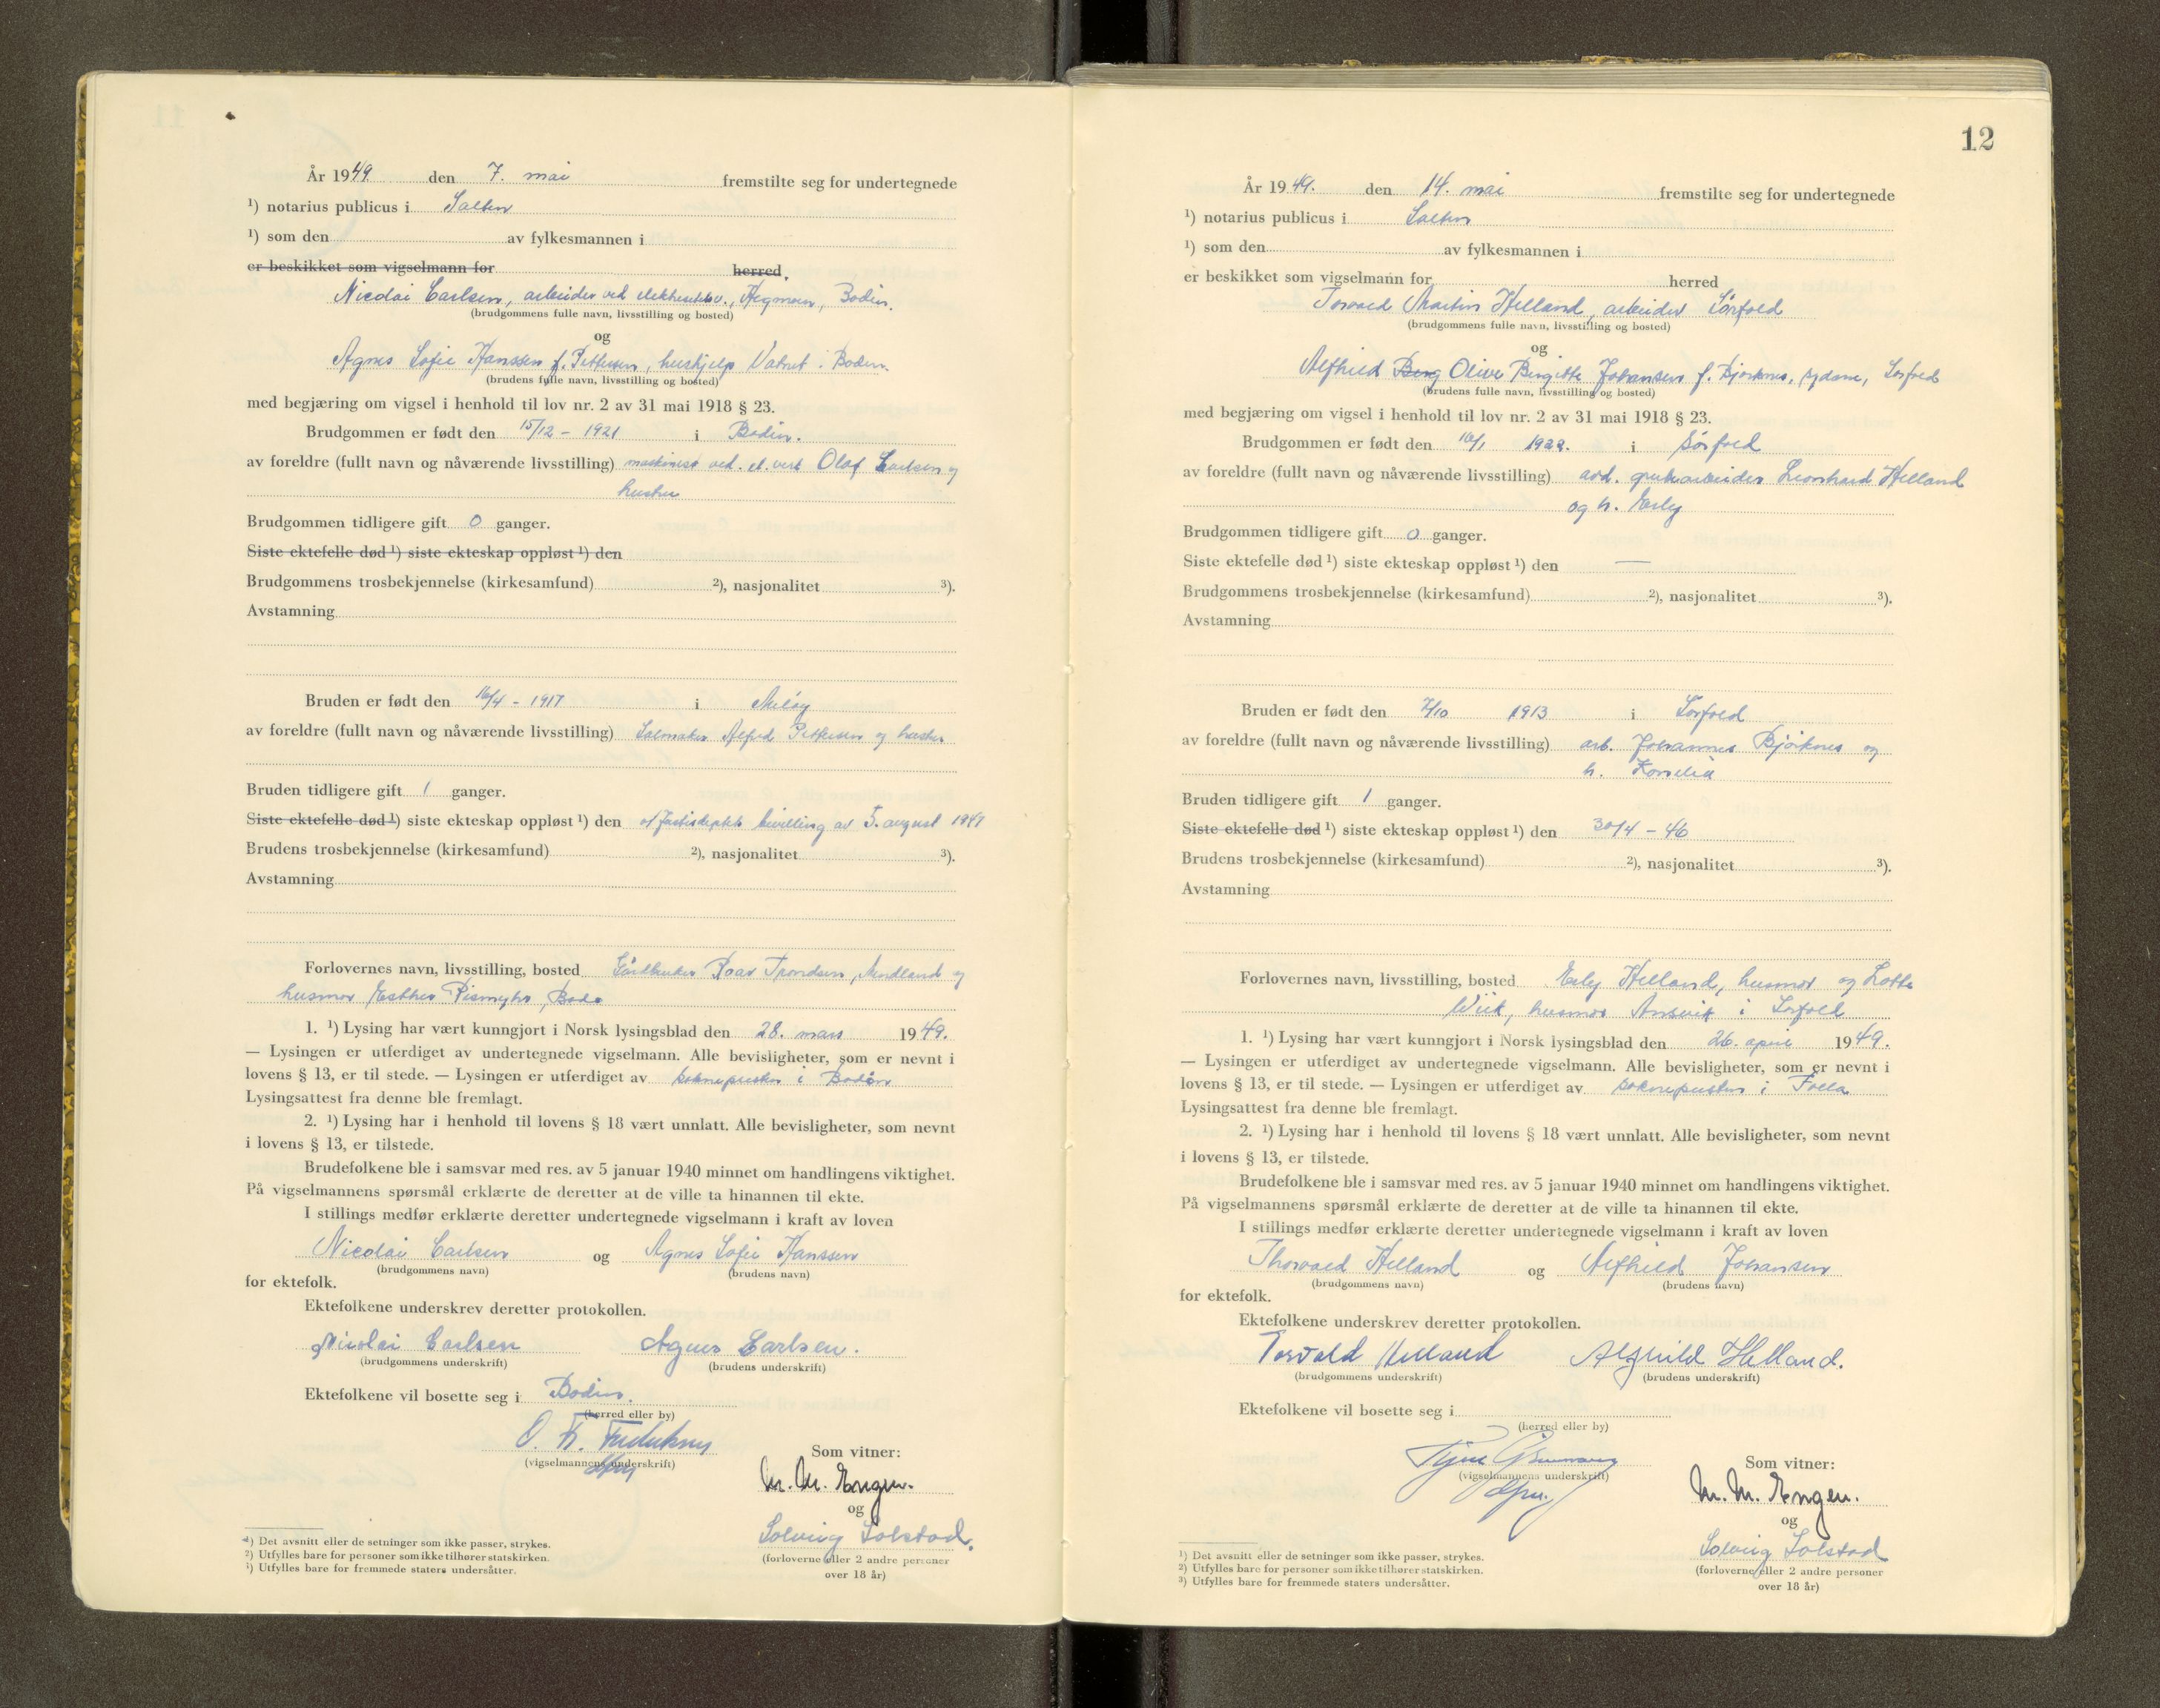 År 1949 den 7. mai fremstilte seg for undertegnede
¹) notarius publicus i Salten
¹) som den av fylkesmannen i
er beskikket som vigselmann for herred.
Nicolai Carlsen, arbeider ved Bodin.
(brudgommens fulle navn, livsstilling og bosted)
og
Agnes Sofie Hanssen f. Pettersen, hushjelp Vatnet i Bodin.
(brudens fulle navn, livsstilling og bosted)
med begjæring om vigsel i henhold til lov nr. 2 av 31 mai 1918 § 23.
Brudgommen er født den 15/12 - 1921 i Bodin.
av foreldre (fullt navn og nåværende livsstilling) maskinist ved. el. verk Olaf Carlsen og
hustru
Brudgommen tidligere gift 0 ganger.
Siste ektefelle død ¹) siste ekteskap oppløst ¹) den
Brudgommens trosbekjennelse (kirkesamfund) ²), nasjonalitet ³).
Avstamning
Bruden er født den 16/4 - 1917 i Meløy
av foreldre (fullt navn og nåværende livsstilling) Salmaker Alfred Pettersen og hustru
Bruden tidligere gift 1 ganger.
Siste ektefelle død ¹) siste ekteskap oppløst ¹) den v/ Justisdeptets bevilling av 5. august 1947
Brudens trosbekjennelse (kirkesamfund) ²), nasjonalitet ³).
Avstamning
Forlovernes navn, livsstilling, bosted Gårdbruker Roar Trondsen, og
husmor Esther Bodø
1. ¹) Lysing har vært kunngjort i Norsk lysingsblad den 28. mars 1949.
— Lysingen er utferdiget av undertegnede vigselmann. Alle bevisligheter, som er nevnt i
lovens § 13, er til stede. — Lysingen er utferdiget av soknepresten i Bodin
Lysingsattest fra denne ble fremlagt.
2. ¹) Lysing har i henhold til lovens § 18 vært unnlatt. Alle bevisligheter, som nevnt
i lovens § 13, er tilstede.
Brudefolkene ble i samsvar med res. av 5 januar 1940 minnet om handlingens viktighet.
På vigselmannens spørsmål erklærte de deretter at de ville ta hinannen til ekte.
I stillings medfør erklærte deretter undertegnede vigselmann i kraft av loven
Nicolai Carlsen og Agnes Sofie Hanssen
(brudgommens navn) (brudens navn)
for ektefolk.
Ektefolkene underskrev deretter protokollen.
Nicolai Carlsen Agnes Carlsen.
(brudgommens underskrift) (brudens underskrift)
Ektefolkene vil bosette seg i Bodin.
(herred eller by)
(vigselmannens underskrift)
Som vitner:
M. M. Engen.
og
Solveig Solstad.
(forloverne eller 2 andre personer
over 18 år)
¹) Det avsnitt eller de setninger som ikke passer, strykes.
²) Utfylles bare for personer som ikke tilhører statskirken.
¹) Utfylles bare for fremmede staters undersåtter.
12
År 1949. den 14. mai fremstilte seg for undertegnede
¹) notarius publicus i Salten
¹) som den av fylkesmannen i
er beskikket som vigselmann for herred
Torvald Martin Helland, arbeider Sørfold
(brudgommens fulle navn, livsstilling og bosted)
og
Alfhild Berg Olive Birgitte Johansen f. Bjørknes, sydame, Sørfold
(brudens fulle navn, livsstilling og bosted)
med begjæring om vigsel i henhold til lov nr. 2 av 31 mai 1918 § 23.
Brudgommen er født den 16/1 1922. i Sørfold
av foreldre (fullt navn og nåværende livsstilling) avd. grubearbeider Leonhard Helland
og h. Erly
Brudgommen tidligere gift 0 ganger.
Siste ektefelle død ¹) siste ekteskap oppløst ¹) den —
Brudgommens trosbekjennelse (kirkesamfund) ²), nasjonalitet ³).
Avstamning
Bruden er født den 7/10 1913 i Sørfold
av foreldre (fullt navn og nåværende livsstilling) arb. Johannes Bjørknes og
h. Kornelia
Bruden tidligere gift 1 ganger.
Siste ektefelle død ¹) siste ekteskap oppløst ¹) den 30/4 - 46
Brudens trosbekjennelse (kirkesamfund) ²), nasjonalitet ³).
Avstamning
Forlovernes navn, livsstilling, bosted Erly Helland, husmor og Lotte
Wiik, husmor Ansvik i Sørfold
1. ¹) Lysing har vært kunngjort i Norsk lysingsblad den 26. april 1949.
— Lysingen er utferdiget av undertegnede vigselmann. Alle bevisligheter, som er nevnt i
lovens § 13, er til stede. — Lysingen er utferdiget av soknepresten i Folla
Lysingsattest fra denne ble fremlagt.
2. ¹) Lysing har i henhold til lovens § 18 vært unnlatt. Alle bevisligheter, som nevnt
i lovens § 13, er tilstede.
Brudefolkene ble i samsvar med res. av 5 januar 1940 minnet om handlingens viktighet.
På vigselmannens spørsmål erklærte de deretter at de ville ta hinannen til ekte.
I stillings medfør erklærte deretter undertegnede vigselmann i kraft av loven
Thorvald Helland og Alfhild Johansen
(brudgommens navn) (brudens navn)
for ektefolk.
Ektefolkene underskrev deretter protokollen.
Torvald Helland Alfhild Helland.
(brudgommens underskrift) (brudens underskrift)
Ektefolkene vil bosette seg i
(herred eller by)
(vigselmannens underskrift)
Som vitner:
M. M. Engen.
og
Solveig Solstad
(forloverne eller 2 andre personer
over 18 år)
¹) Det avsnitt eller de setninger som ikke passer, strykes.
²) Utfylles bare for personer som ikke tilhører statskirken.
³) Utfylles bare for fremmede staters undersåtter.